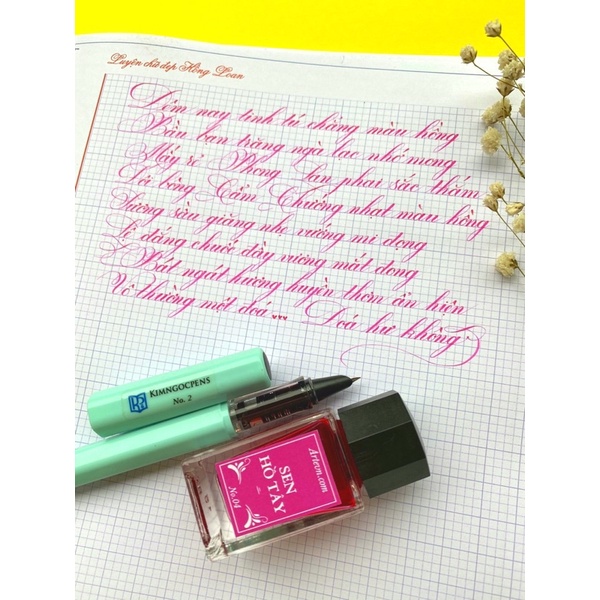 Luyện chữ đẹp Hồng Loan
Đêm nay tinh tú chẳng màu hồng
Bầu bạn trăng ngà lạc nhớ mong
Mấy sợi Phong Lan phai sắc thắm
Đôi bông Cẩm Chướng nhạt màu hồng
Sương sầu giăng nhẹ vướng mi đọng
Lệ đắng chuốt đầy vương mắt dong
Bát ngát hương huyền thơm ẩn hiện
Vô thường một đoá ♥♥♥ Đoá hư không
KIMNGOCPENS
No. 2
Artevn.com
SEN
HỒ TÂY
No.04